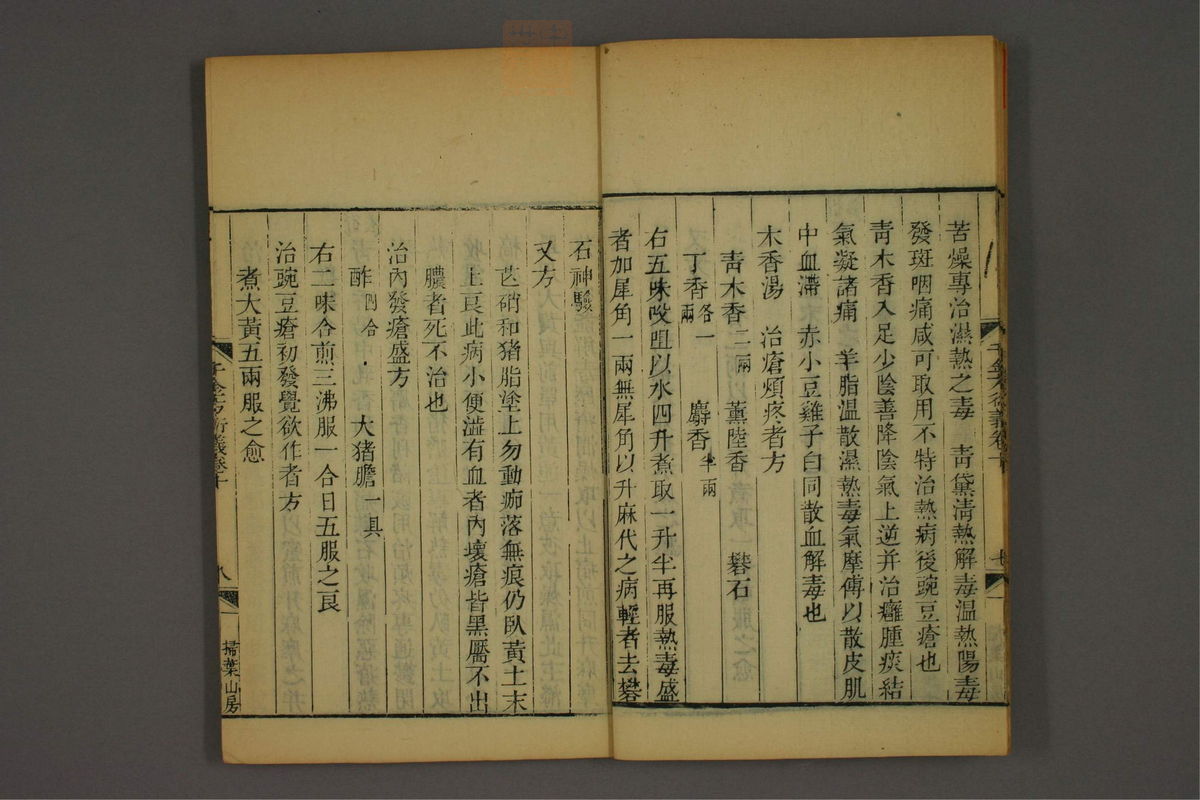 苦燥專治濕熱之毒　靑黛淸熱解毒温熱陽毒
發斑咽痛咸可取用不特治熱病後豌豆瘡也
靑木香入足少陰善降陰氣上逆并治癰腫痰結
氣凝諸痛　羊脂温散濕熱毒氣摩傅以散皮肌
中血滯　赤小豆雞子白同散血解毒也
木香湯　治瘡煩疼者方
靑木香二兩　薰陸香　礬石
丁香各一兩　麝香半兩
右五味㕮咀以水四升煮取一升半再服熱毒盛
者加犀角一兩無犀角以升麻代之病輕者去礬
千金方衍義卷十
七
石神驗
又方
芒硝和猪脂塗上勿動痂落無痕仍臥黃土末
上良此病小便澁有血者內壞瘡皆黑靨不出
膿者死不治也
治內發瘡盛方
酢四合　大猪膽一具
右二味合煎三沸服一合日五服之良
治豌豆瘡初發覺欲作者方
煮大黃五兩服之愈
千金方衍義卷十
八
掃葉山房